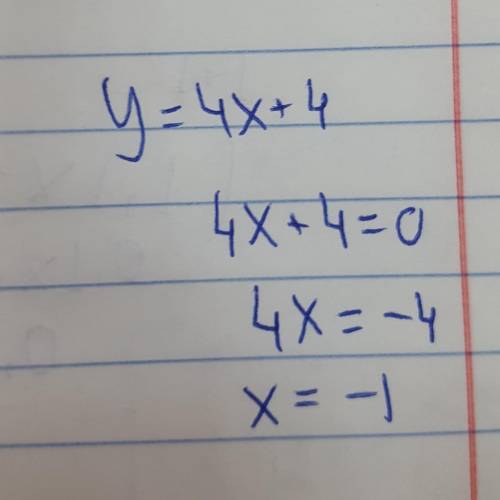 y = 4x + 4
4x + 4 = 0
4x = -4
x = -1